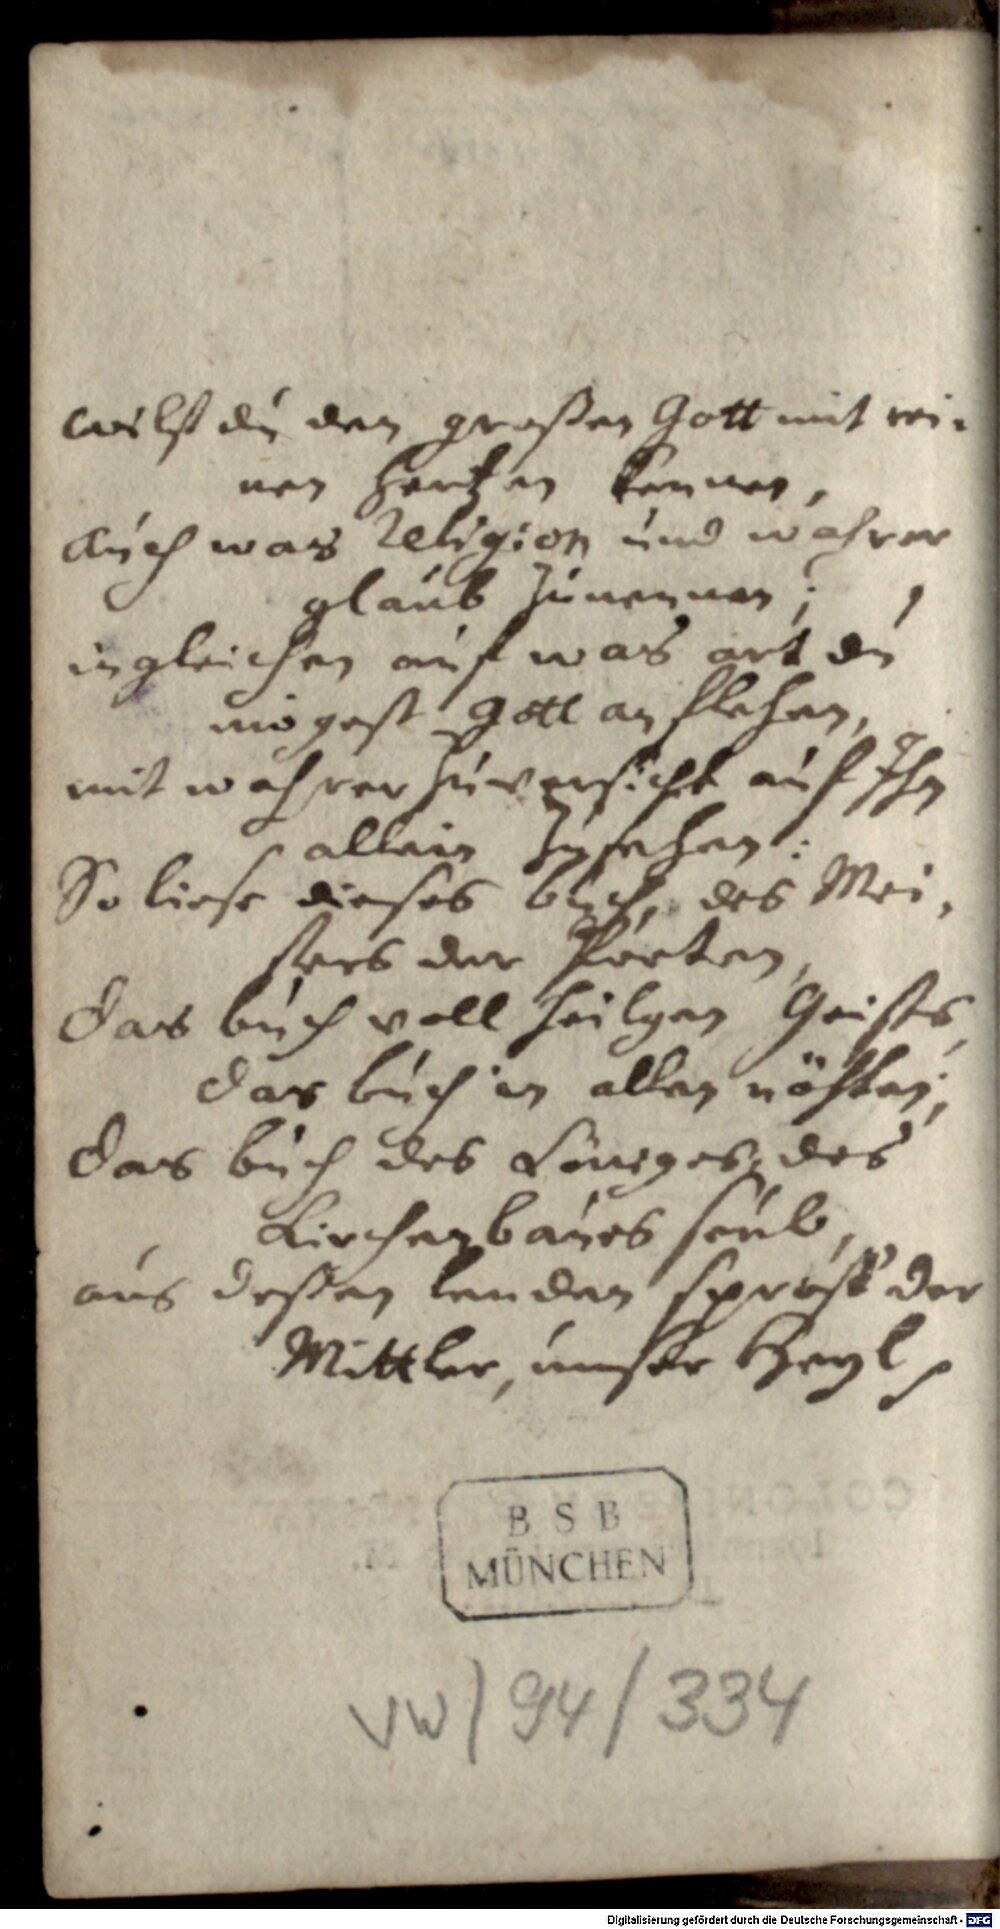 wilst du den großen Gott mit rei-
nen hertzen kennen,
Auch was Religion und wahrer
glaub zunennen;
ingleichen auf was art du
mögest Gott anflehen,
mit wahrer zuversicht auf Ihn
allein zusehen:
So liese dieses buch, des Mei-
sters der Poeten,
Das buch voll heilgen Geistes,
das buch in allen nöhten;
Das buch des Königes, des
Kirchenbaues seul,
aus deßen lenden sprost der
Mittler, unser Heyl.
B S B
MÜNCHEN
VW/94/334
Digitalisierung gefördert durch die Deutsche Forschungsgemeinschaft - DFG